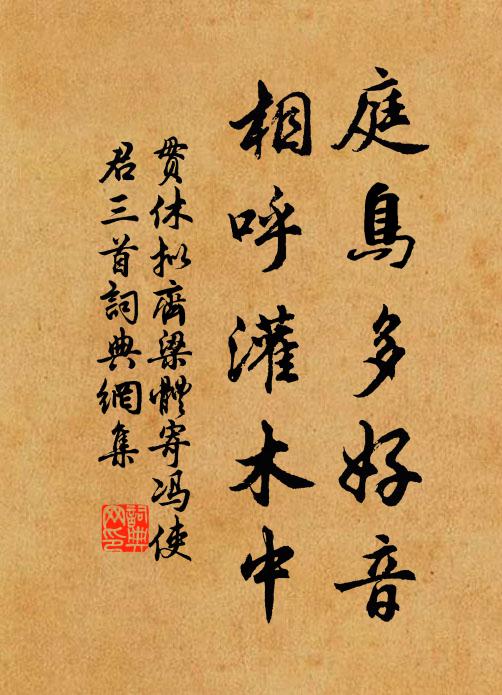 庭鳥多好音
相呼灌木中
貫休擬齊梁體寄馮使
君三首詞典網集
詞典
网印